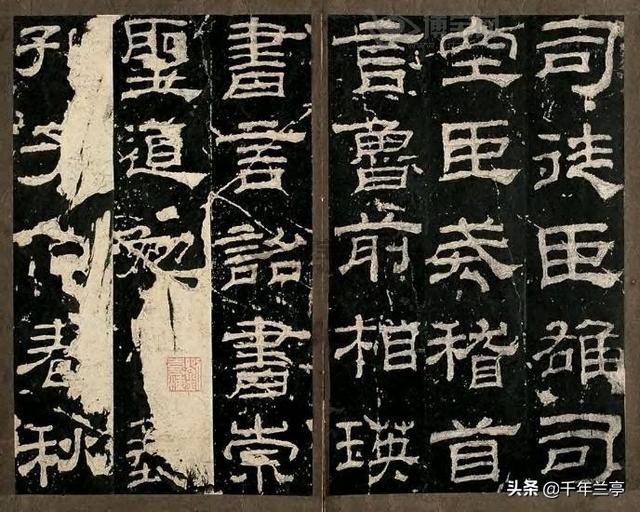 司徒臣雄司
空臣戒稽首
言魯前相瑛
書言詔書崇
聖道勉
孔子作春秋
头条 @千年兰亭